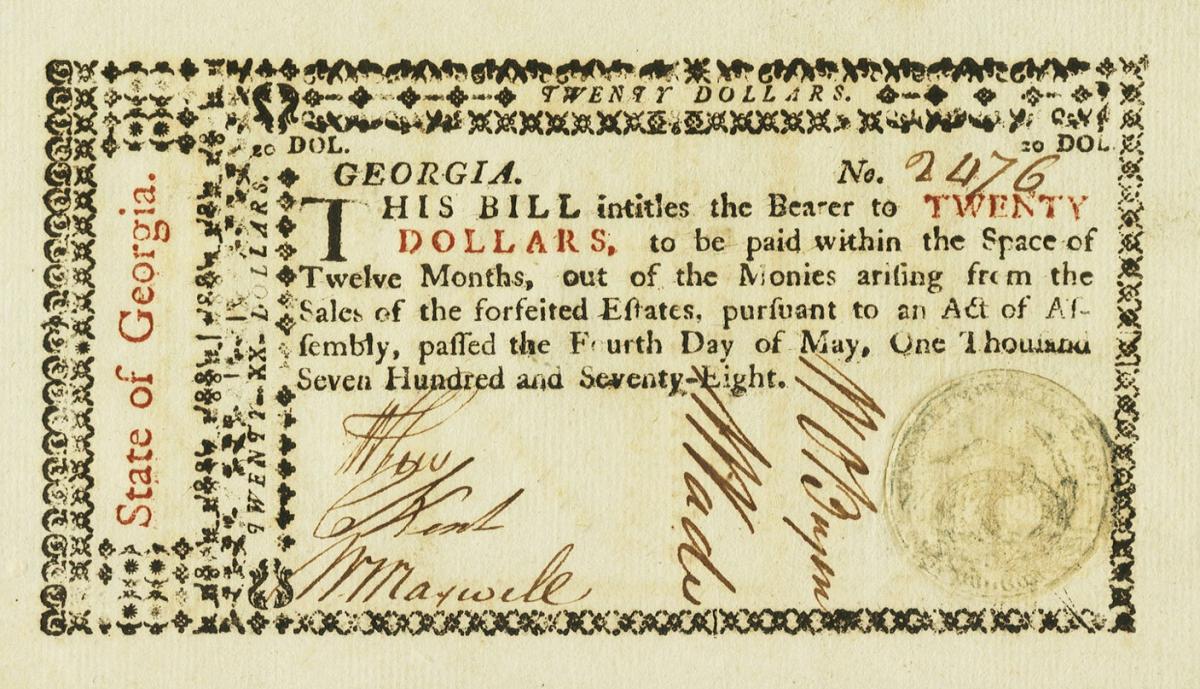 TWENTY DOLLARS.
20 DOL.
20 DOL.
GEORGIA.
No. 2476
THIS BILL intitles the Bearer to TWENTY
DOLLARS, to be paid within the Space of
Twelve Months, out of the Monies ariſing from the
Sales of the forfeited Eſtates, purſuant to an Act of Aſ-
ſembly, paſſed the Fourth Day of May, One Thouſand
Seven Hundred and Seventy-Eight.
State of Georgia.
TWENTY—XX—DOLLARS.
Kent
W Maxwell
Wade